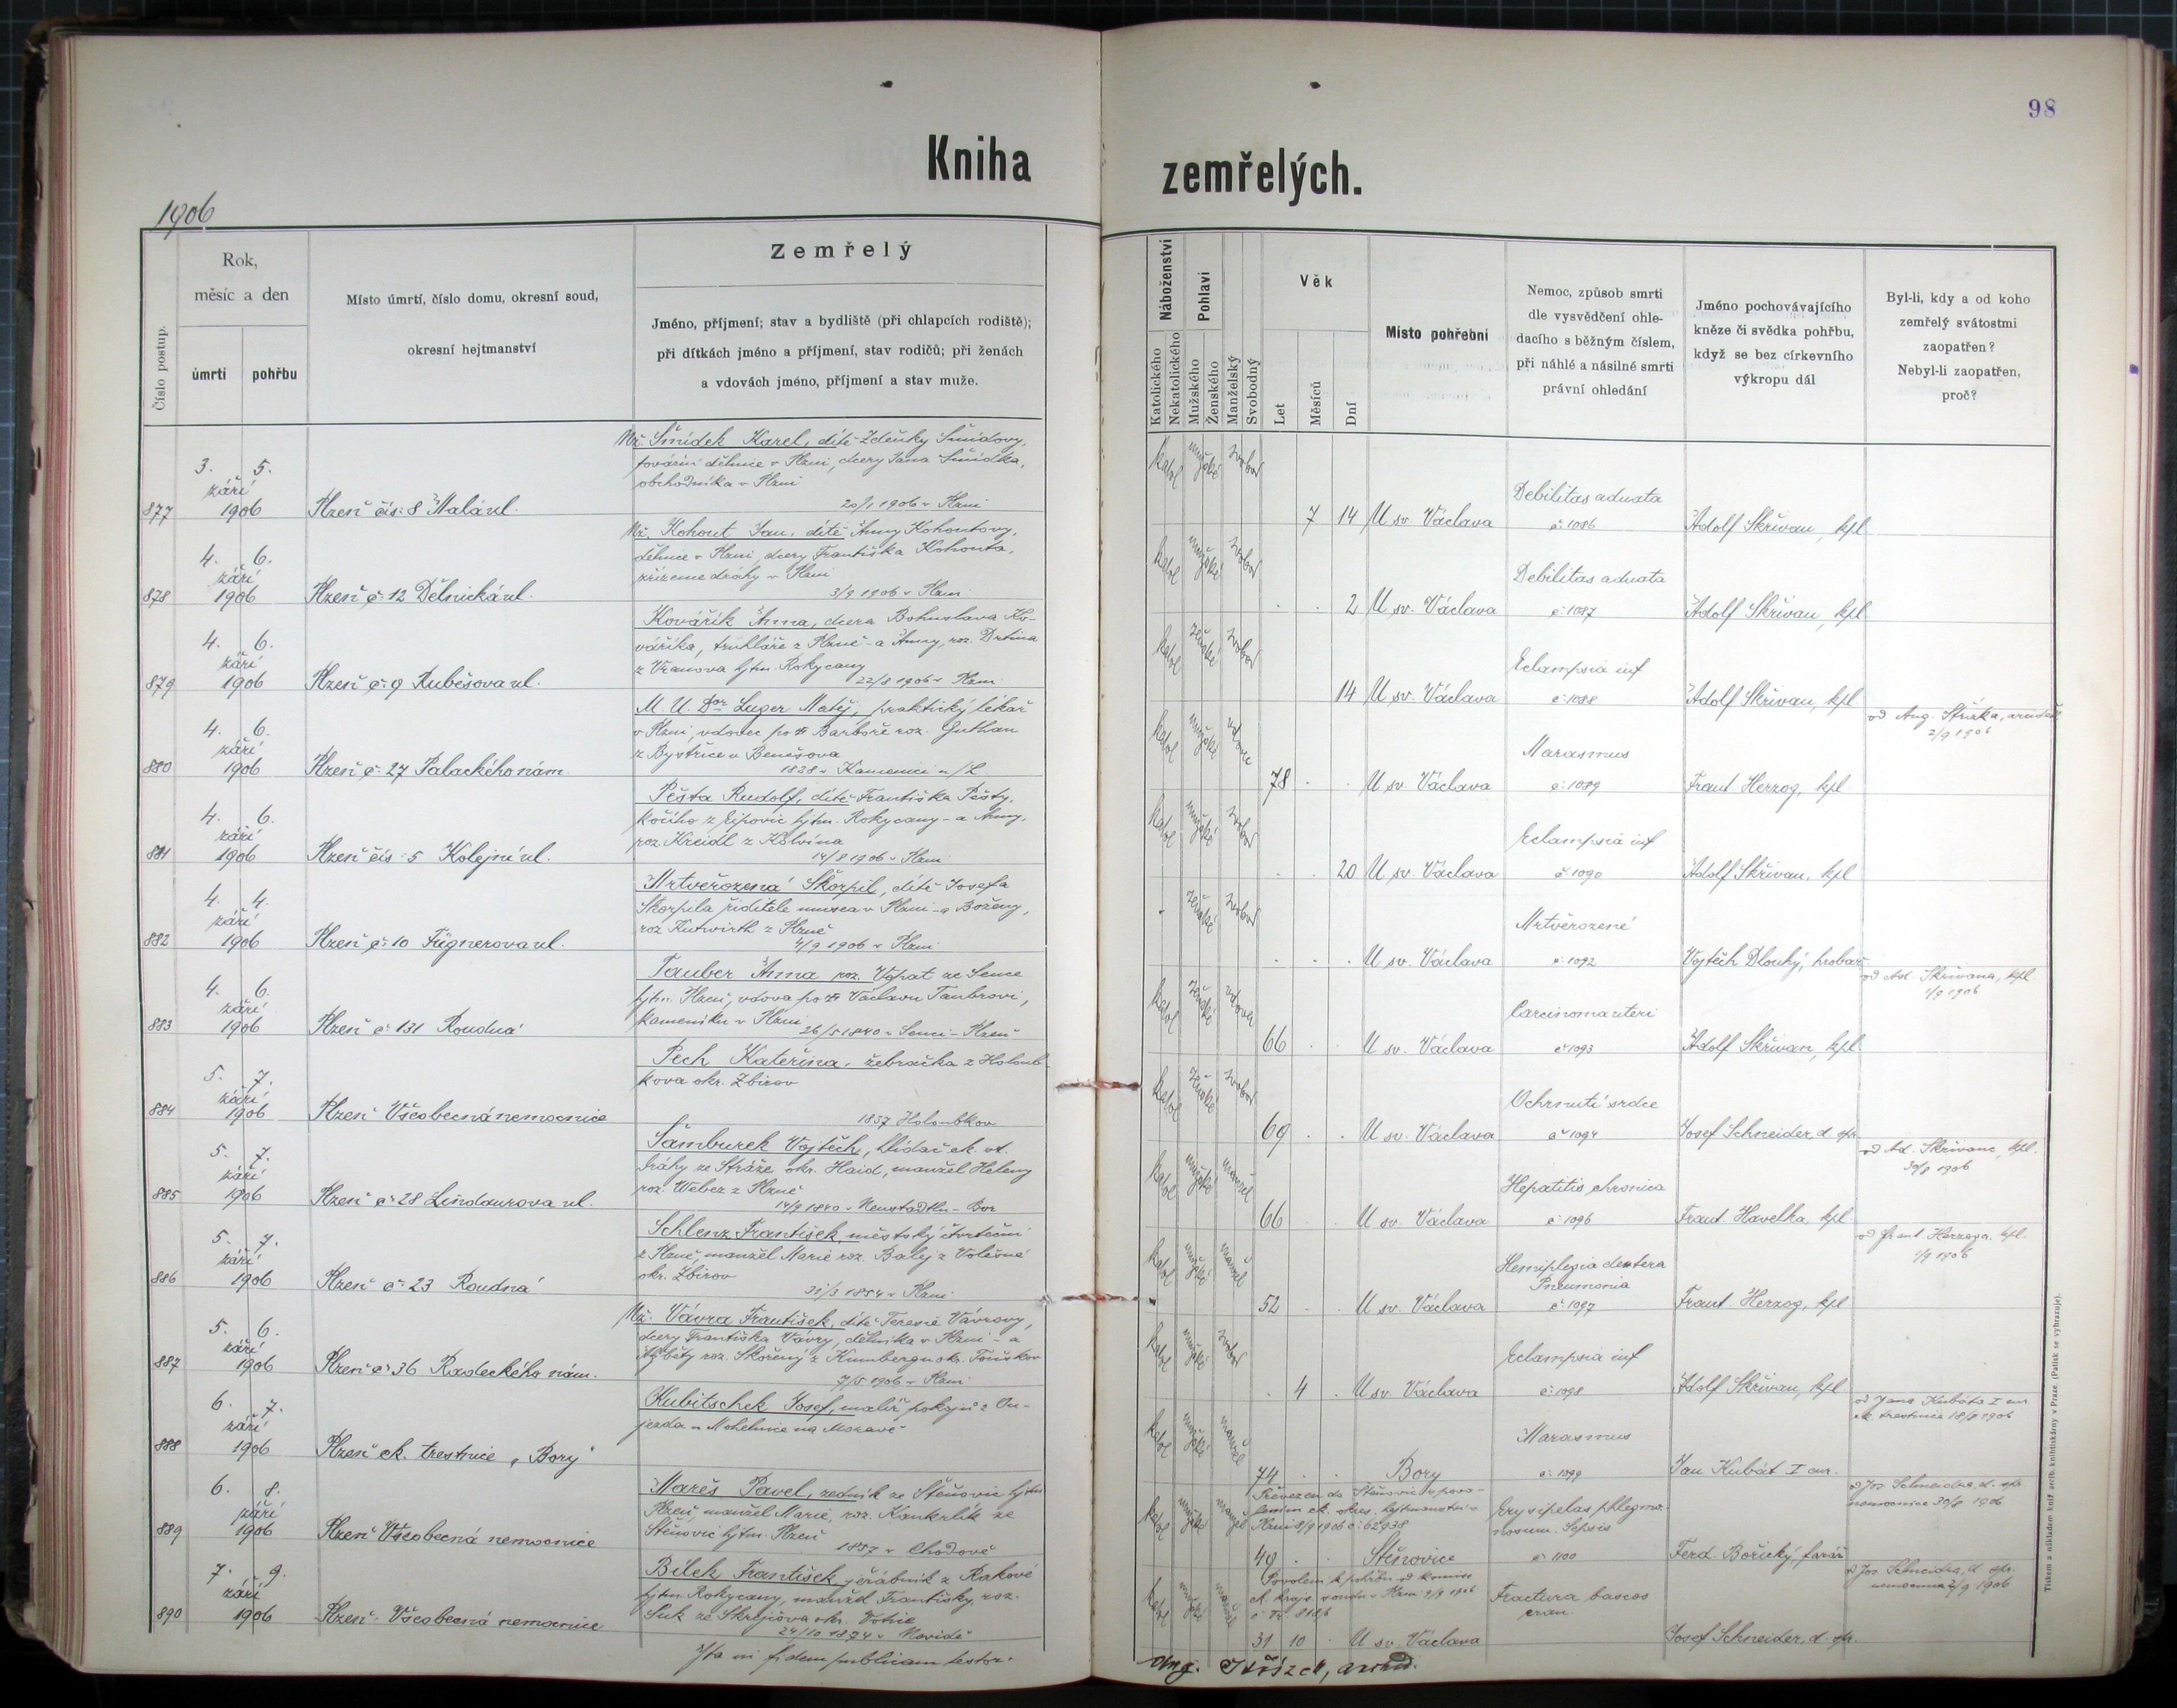 98
Kniha zemřelých.
1906
Číslo postup.
Rok,
měsíc a den
úmrtí
pohřbu
Místo úmrtí, číslo domu, okresní soud,
okresní hejtmanství
Zemřelý
Jméno, příjmení; stav a bydliště (při chlapcích rodiště);
při dítkách jméno a příjmení, stav rodičů; při ženách
a vdovách jméno, příjmení a stav muže.
Náboženství
Katolického
Nekatolického
Pohlaví
Mužského
Ženského
Manželský
Svobodný
Věk
Let
Měsíců
Dní
Místo pohřební
Nemoc, způsob smrti
dle vysvědčení ohle-
dacího s běžným číslem,
při náhlé a násilné smrti
právní ohledání
Jméno pochovávajícího
kněze či svědka pohřbu,
když se bez církevního
výkropu dál
Byl-li, kdy a od koho
zemřelý svátostmi
zaopatřen?
Nebyl-li zaopatřen,
proč?
877
3. 5.
září
1906
Plzeň čís: 8 Malá ul.
Nž. Šmídek Karel, dítě Zdeňky Šmídovy,
tovární dělnice v Plzni, dcery Jana Šmídka,
obchodníka v Plzni
20/1 1906 v Plzni
katol mužské svobod
7 14 U sv. Václava
Debilitas adnata
č: 1086
Adolf Skřivan, kpl
878
4. 6.
září
1906
Plzeň č: 12 Dělnická ul.
Nž. Kohout Jan, dítě Anny Kohoutovy,
dělnice v Plzni, dcery Františka Kohouta,
zřízence dráhy v Plzni
3/9 1906 v Plzni
katol mužské svobod
2 U sv. Václava
Debilitas adnata
č: 1087
Adolf Skřivan, kpl
879
4. 6.
září
1906
Plzeň č: 9 Rubešova ul.
Kovářík Anna, dcera Bohuslava Ko-
váříka, truhláře z Plzně - a Anny, roz. Drtina
z Vranova hjtm. Rokycany
22/8 1906 v Plzni
katol ženské svobod
14 U sv. Václava
Eclampsia inf
č: 1088
Adolf Skřivan, kpl
880
4. 6.
září
1906
Plzeň č: 27 Palackého nám.
M. U. Dor Luger Matěj, praktický lékař
v Plzni, vdovec po Barboře roz. Guthan
z Bystřice u Benešova
1828 v Kamenici n/L
katol mužské vdovec
78 U sv. Václava
Marasmus
č: 1089
Frant. Herzog, kpl.
od Aug. Střízka,
2/9 1906
881
4. 6.
září
1906
Plzeň čís: 5 Kolejní ul.
Pešta Rudolf, dítě Františka Pešty,
kočího z Ejpovic hjtm. Rokycany - a Anny,
roz. Kreidl z Kolvína
14/8 1906 v Plzni
katol mužské svobod
20 U sv. Václava
Eclampsia inf
č 1090
Adolf Skřivan, kpl
882
4. 4.
září
1906
Plzeň č: 10 Fügnerova ul.
Mrtvěrozená Škorpil, dítě Josefa
Škorpila ředitele musea v Plzni - a Boženy,
roz Kutwirth z Plzně
4/9 1906 v Plzni
ženské svobod
U sv. Václava
Mrtvěrozené
č: 1092
Vojtěch Dlouhý, hrobař
883
4. 6.
září
1906
Plzeň č: 131 Roudná
Tauber Anna roz. Vopat ze Sence
hjtm. Plzeň, vdova po Václavu Taubrovi,
kameníku v Plzni
26/5 1840 v Senci - Plzeň
katol ženské vdova
66 U sv. Václava
Carcinoma uteri
č 1093
Adolf Skřivan, kpl.
od Ad. Skřivana, kpl.
1/9 1906
884
5. 7.
září
1906
Plzeň Všeobecná nemocnice
Pech Kateřina, žebračka z Holoub-
kova okr. Zbirov
1837 Holoubkov
katol ženské svobod
69 U sv. Václava
Ochrnutí srdce
č 1094
Josef Schneider, d. spr.
885
5. 7.
září
1906
Plzeň č: 28 Lindaurova ul.
Šamburek Vojtěch, hlídač ck. st.
dráhy ze Stráže okr. Haid, manžel Heleny
roz. Weber z Plzně
14/9 1840 v Neustadtln - Bor
katol mužské manžel
66 U sv. Václava
Hepatitis chronica
č 1096
Frant. Havelka, kpl
od Ad. Skřivana, kpl.
30/8 1906
886
5. 7.
září
1906
Plzeň č: 23 Roudná
Schlenz František, městský čtvrtečni
z Plzně, manžel Marie roz. Balej z Volešné
okr. Zbirov
31/3 1854 v Plzni
katol mužské manžel
52 U sv. Václava
Hemiplegia dextera
Pneumonia
č 1097
Frant Herzog, kpl
od Frant Herzoga, kpl.
1/9 1906
887
5. 6.
září
1906
Plzeň č: 36 Radeckého nám.
Nž. Vávra František, dítě Teresie Vávrovy,
dcery Františka Vávry, dělníka v Plzni - a
Alžběty roz. Skořený z Kumbergu okr. Touškov
7/5 1906 v Plzni
katol mužské svobod
4 U sv. Václava
Eclampsia inf
č: 1098
Adolf Skřivan, kpl
888
6. 7.
září
1906
Plzeň ck. trestnice "Bory"
Kubitschek Josef, malíř pokojů z Ou-
jezda u Mohelnice na Moravě
katol mužské manžel
74 Bory
Marasmus
č: 1099
Jan Kubát I cur.
od Jana Kubáta I cur
ck. trestnice 18/8 1906
889
6. 8.
září
1906
Plzeň Všeobecná nemocnice
Mareš Pavel, zedník ze Štěnovic hjtm
Plzeň, manžel Marie, roz. Kankrlík ze
Štěnovic hjtm. Plzeň
1857 v Chodově
katol mužské manžel
Převezen do Štěnovic s povo-
lením ck. okres. hejtmanství v
Plzni 8/9 1906 č: 62938
49 Štěnovice
Erysipelas phlegmo-
nosum. Sepsis
č: 1100
Ferd. Bořický, farář
od Jos Schneidra, d. spr.
nemocnice 30/8 1906
890
7. 9.
září
1906
Plzeň Všeobecná nemocnice
Bílek František, jeřábník z Rakové
hjtm. Rokycany, manžel Františky, roz.
Suk ze Skrejšova okr. Votice
24/10 1874 v
katol mužské manžel
Povolení k pohřbu od komise
ck. kraj. soudu v Plzni 9/9 1906
31 10 U sv. Václava
Fractura baseos
cran.
Josef Schneider, d. spr.
od Jos Schneidra, d. spr.
nemocnice 2/9 1906
Ita in fidem publicam testor.
Aug. Střízek, archid.
Tiskem a nákladem kníž. arcib. knihtiskárny v Praze. (Patisk se vyhrazuje).